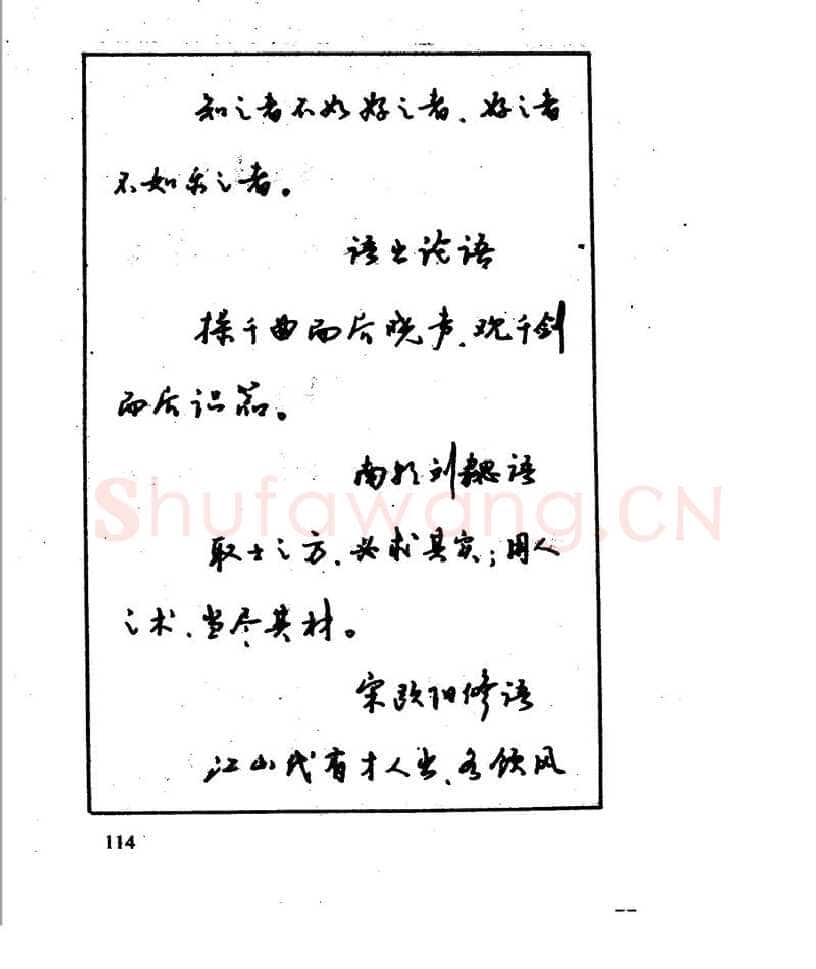 知之者不如好之者、好之者
不如乐之者。
语出论语
操千曲而后晓声、观千剑
而后识器。
南朝刘勰语
Shufawang.CN
取士之方、必求其实；用人
之术、当尽其材。
宋欧阳修语
江山代有才人出、各领风
114